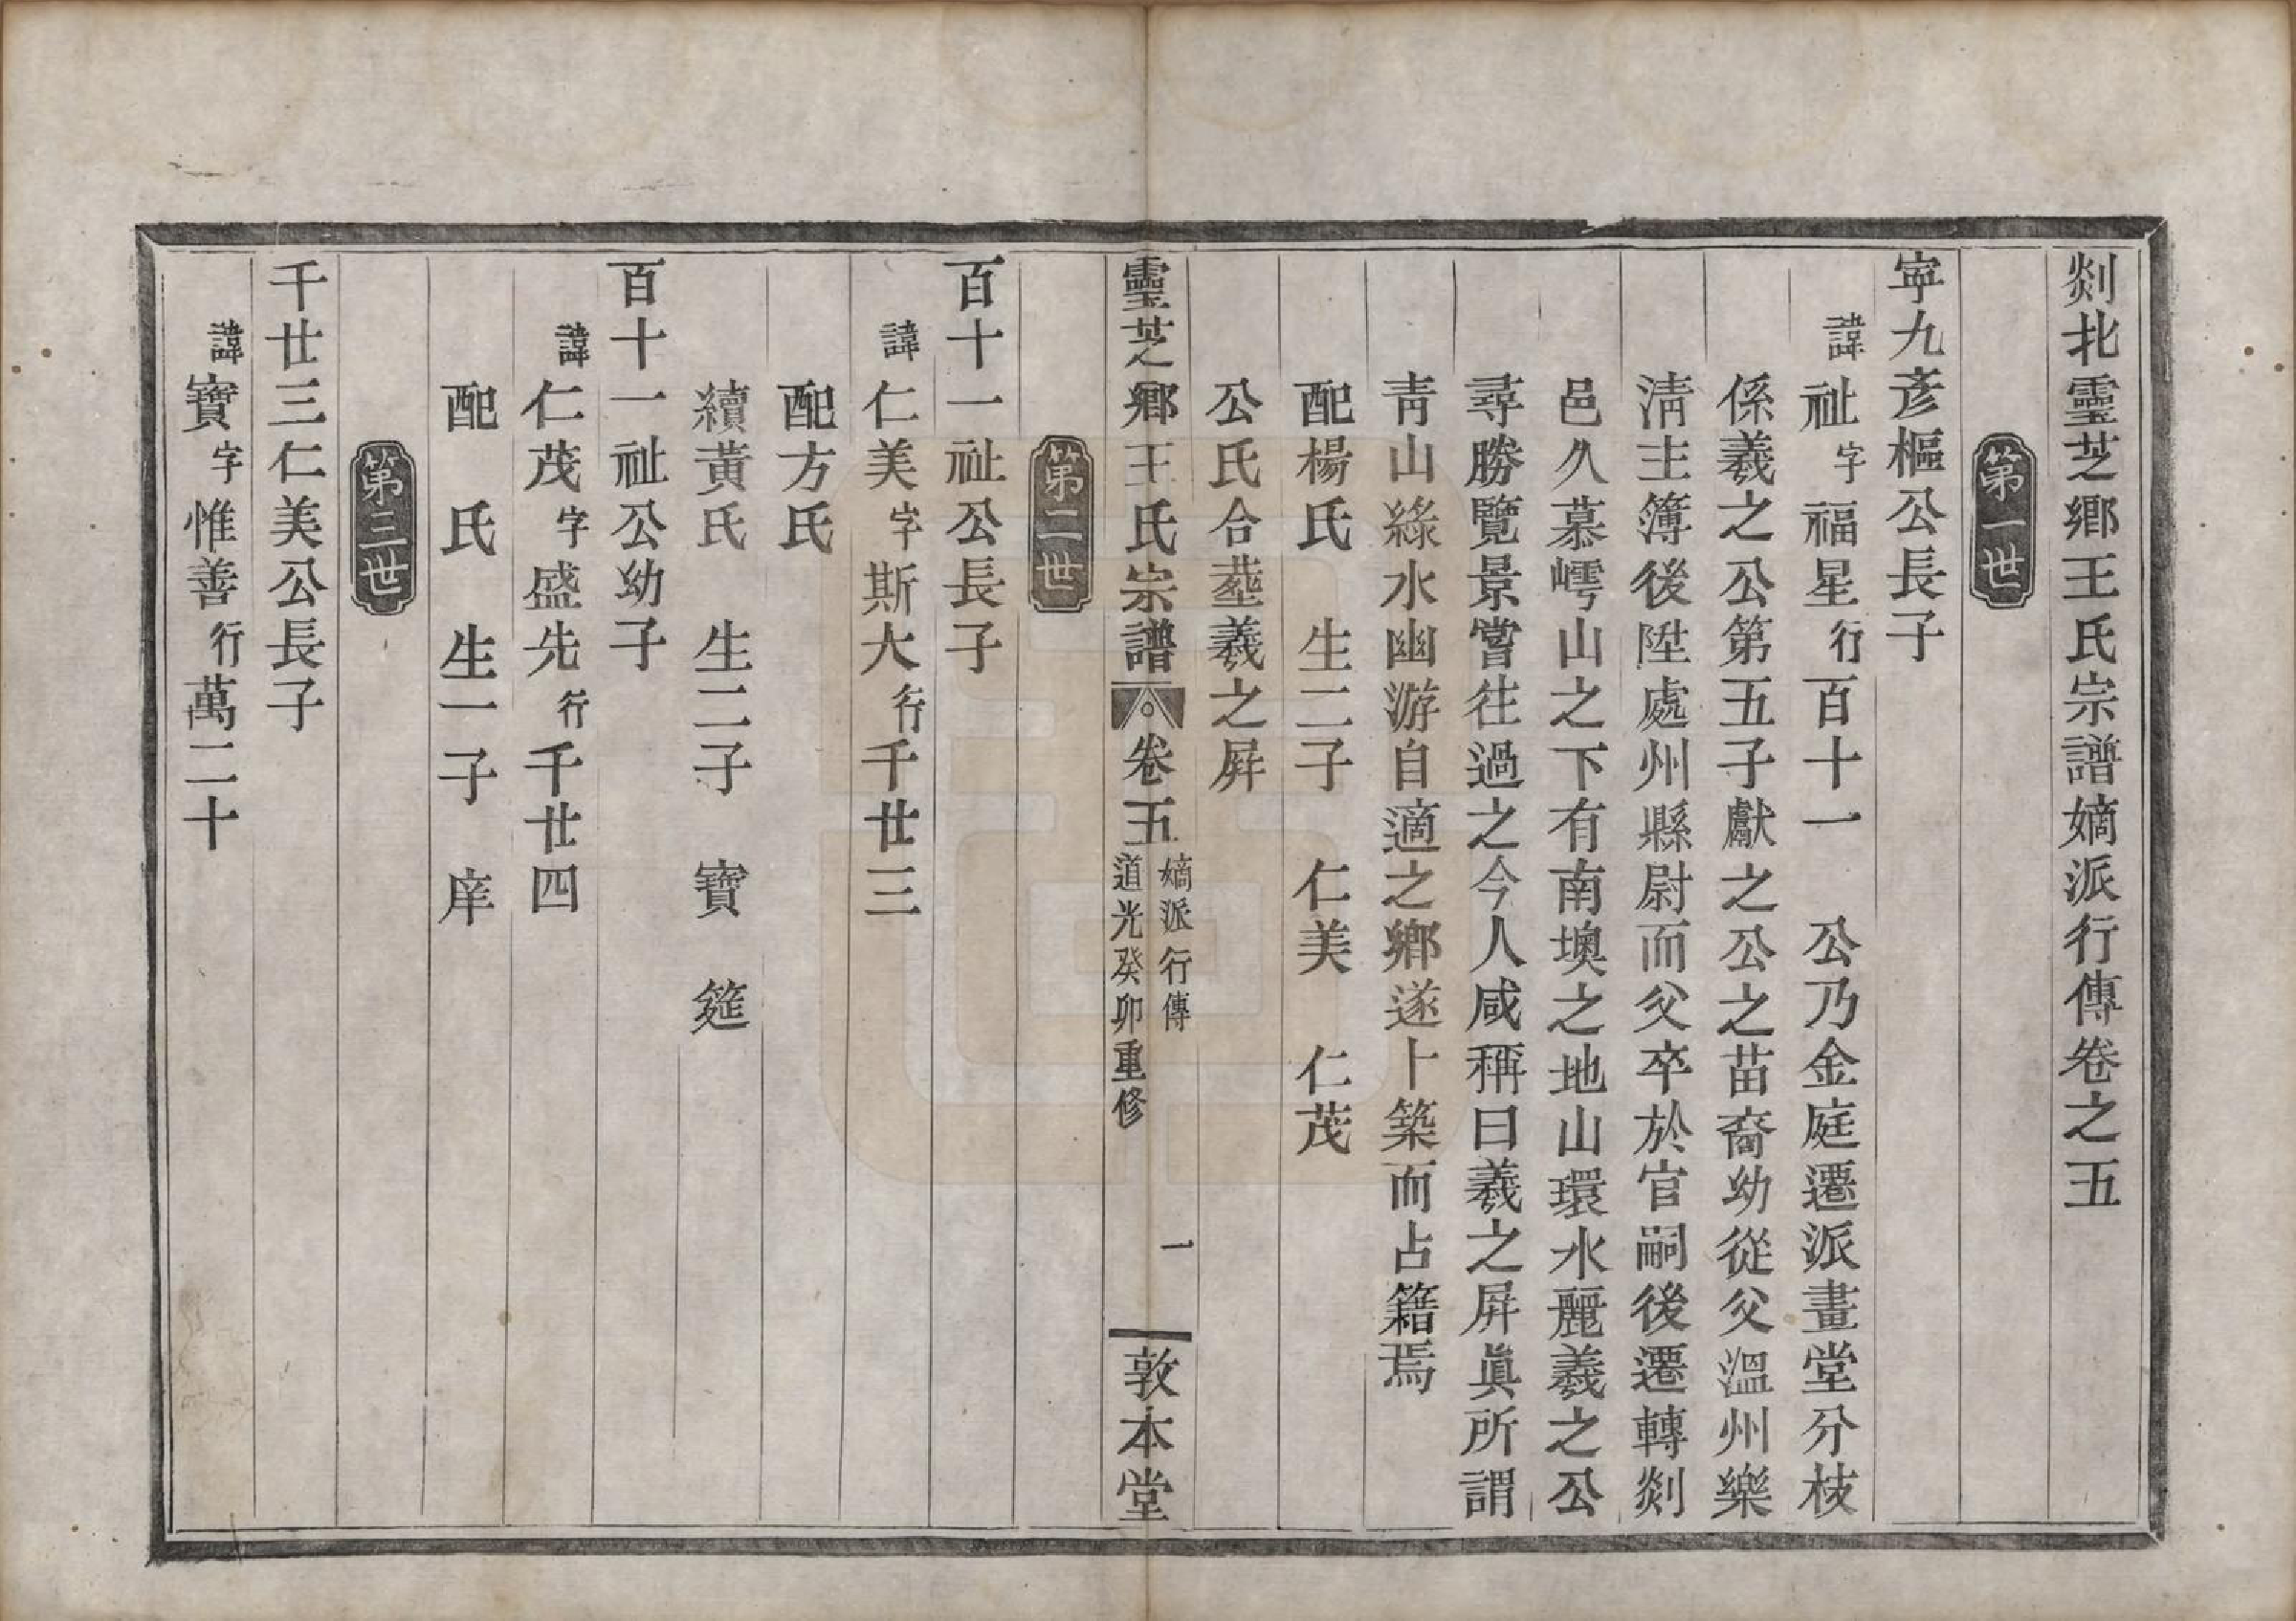 剡北靈芝鄉王氏宗譜嫡派行傳卷之五
第一世
寧九彥樞公長子
諱祉字福星行百十一　公乃金庭遷派畫堂分枝
係羲之公第五子獻之公之苗裔幼從父溫州樂
淸主簿後陞處州縣尉而父卒於官嗣後遷轉剡
邑久慕嶀山之下有南墺之地山環水麗羲之公
尋勝覽景嘗往過之今人咸稱曰羲之屛眞所謂
靑山綠水幽游自適之鄉遂卜築而占籍焉
配楊氏　生二子　仁美　仁茂
公氏合塟羲之屛
靈芝鄉王氏宗譜　卷五　嫡派行傳　道光癸卯重修　一　敦本堂
第二世
百十一祉公長子
諱仁美字斯大行千廿三
配方氏
續黃氏　生二子　寶　筵
百十一祉公幼子
諱仁茂字盛先行千廿四
配　氏　生一子　庠
第三世
千廿三仁美公長子
諱寶字惟善行萬二十